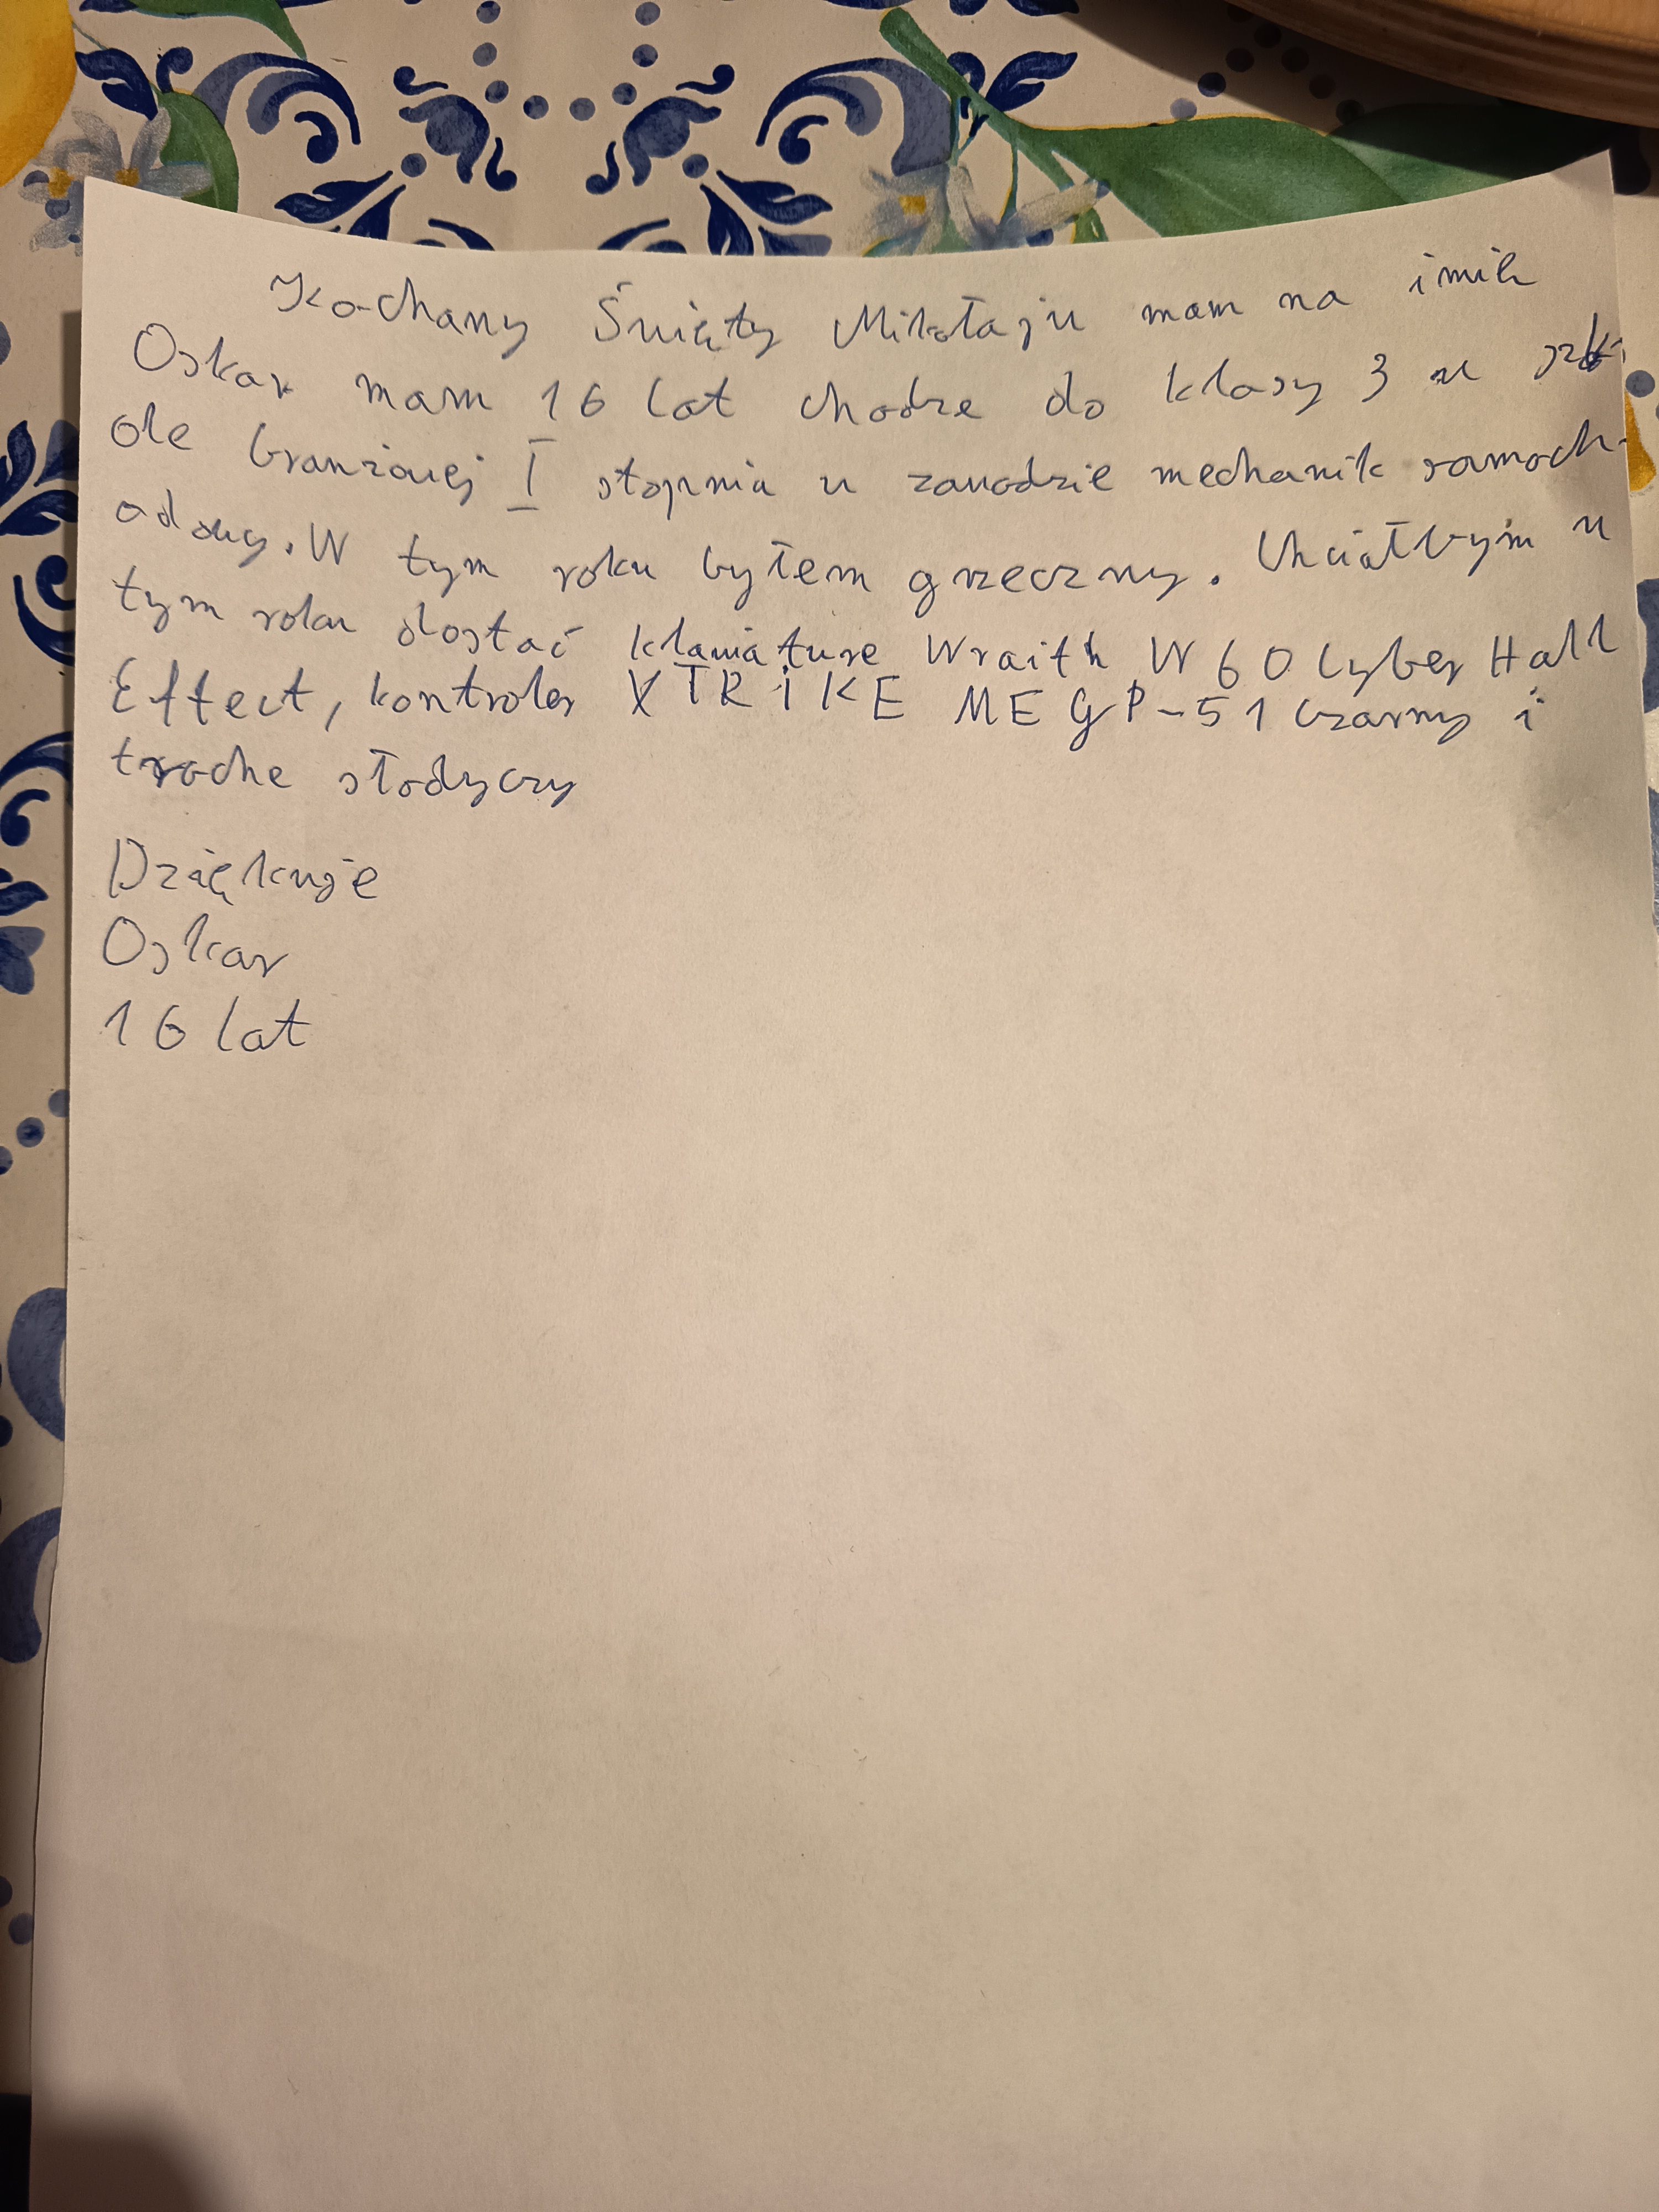 Kochany Święty Mikołaju mam na imie
Oskar mam 16 lat chodze do klasy 3 w szk-
ole branżowej I stopnia w zawodzie mechanik samoch-
odowy. W tym roku byłem grzeczny. Chciałbym w
tym roku dostać klawiature Wraith W60 Cyber Hall
Effect, kontroler XTRIKE ME GP-51 czarny i
troche słodyczy
Dziękuje
Oskar
16 lat